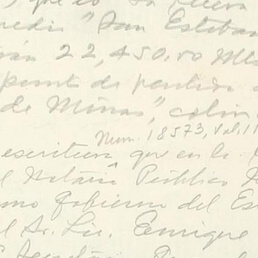 , que es la nueva
predio "San Esteban
rán 22,450.00 Mts
punto de partida a
de Minas", colin
Num. 18573, Vol. 11
escritura que en la
el Notario Público
mo Gobierno del Es
el Sr. Lic. Enrique